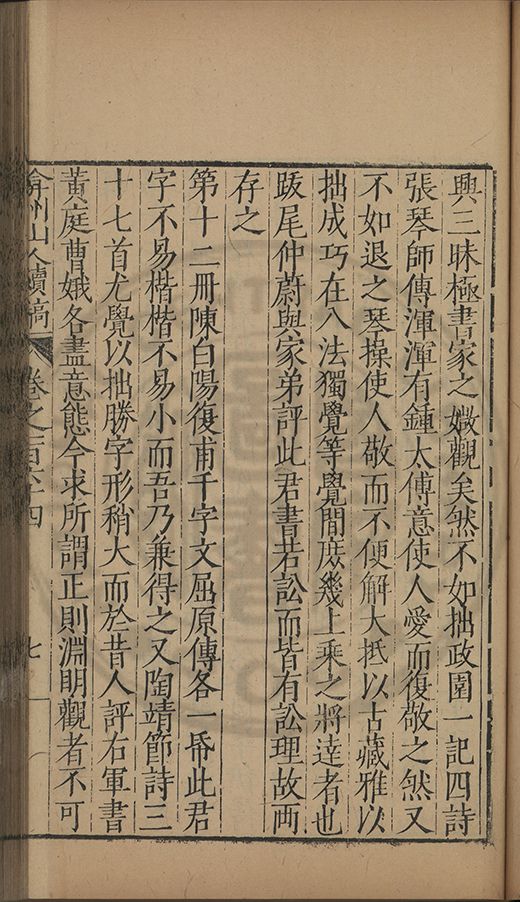 興三昧極書家之媺觀矣然不如拙政園一記四詩
張琴師傳渾渾有鍾太傅意使人愛而復敬之然又
不如退之琴操使人敬而不便解大抵以古藏雅以
拙成巧在八法獨覺等覺間庶幾上乘之將達者也
跋尾仲蔚與家弟評此君書若訟而皆有訟理故兩
存之
第十二冊陳白陽復甫千字文屈原傳各一帋此君
字不易楷楷不易小而吾乃兼得之又陶靖節詩三
十七首尤覺以拙勝字形稍大而於昔人評右軍書
黃庭曹娥各盡意態今求所謂正則淵明觀者不可
弇州山人續稿 卷之一百六十四 七